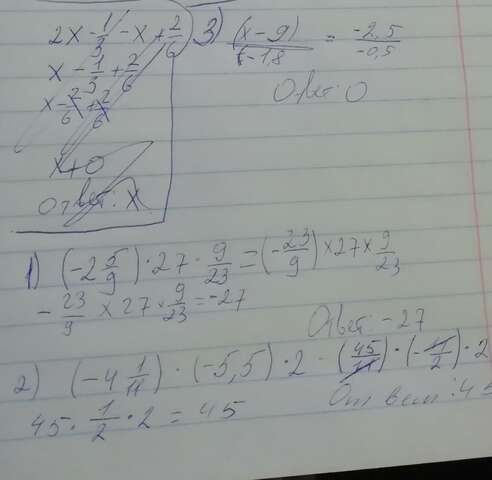 2x - 1/3 - x + 2/6
x - 1/3 + 2/6
x - 2/6 + 2/6
x + 0
Ответ: x
3) (x - 9) / -1,8 = -2,5 / -0,5
Ответ: 0
1) (-2 5/9) · 27 · 9/23 = (-23/9) × 27 × 9/23
- 23/9 × 27 × 9/23 = -27
Ответ: -27
2) (-4 1/11) · (-5,5) · 2 - (45/11) · (-11/2) · 2
45 · 1/2 · 2 = 45
Ответ: 45